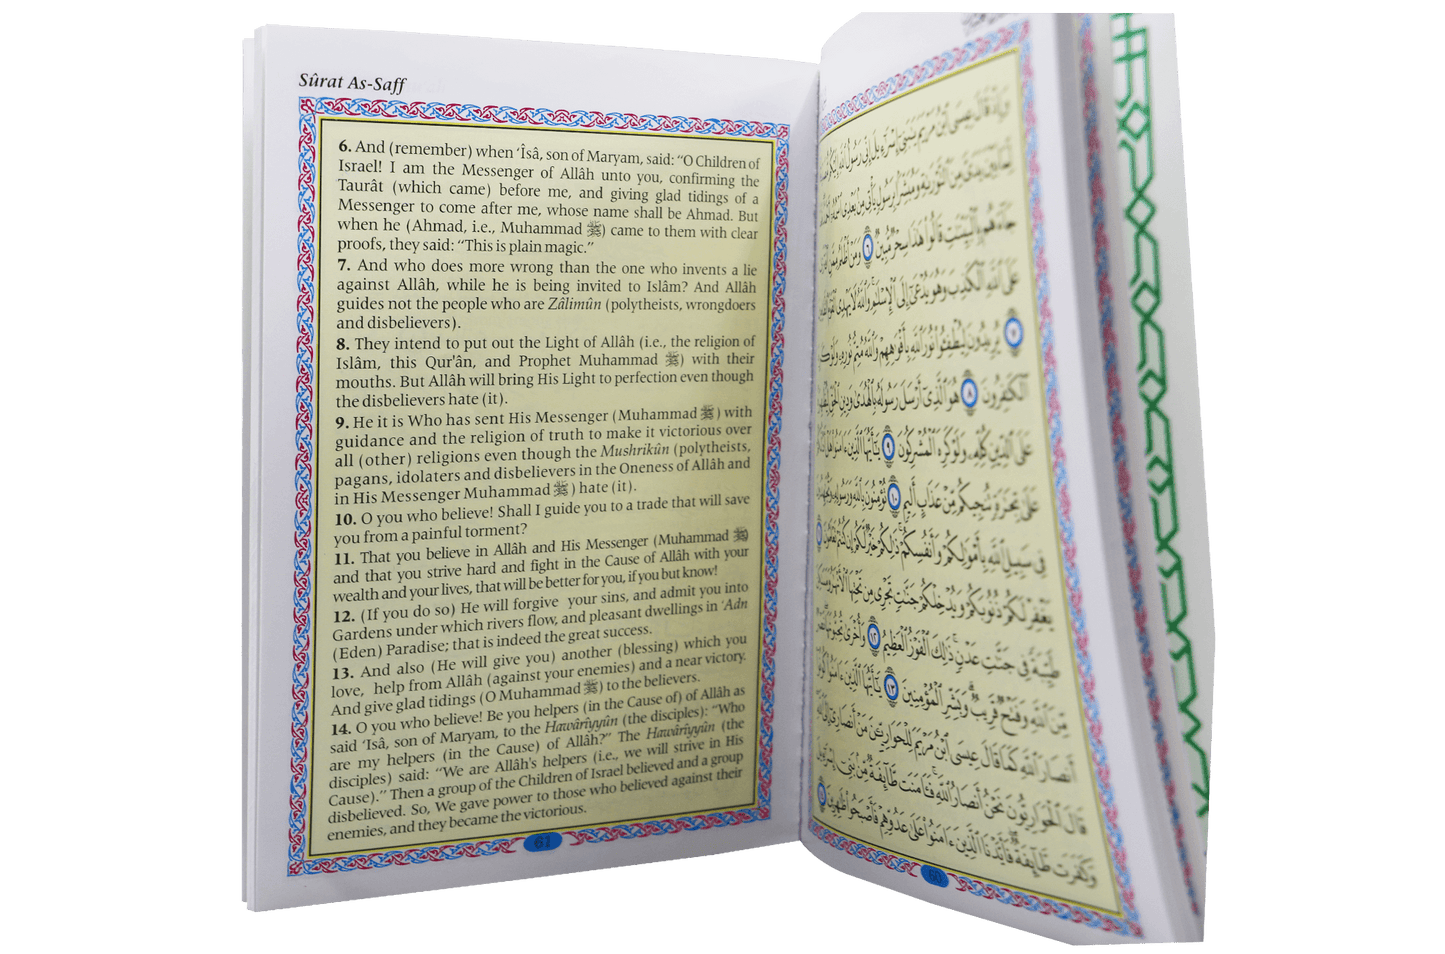 Sûrat As-Saff
6. And (remember) when ‘Îsâ, son of Maryam, said: “O Children of
Israel! I am the Messenger of Allâh unto you, confirming the
Taurât (which came) before me, and giving glad tidings of a
Messenger to come after me, whose name shall be Ahmad. But
when he (Ahmad, i.e., Muhammad ﷺ) came to them with clear
proofs, they said: “This is plain magic.”
7. And who does more wrong than the one who invents a lie
against Allâh, while he is being invited to Islâm? And Allâh
guides not the people who are Zâlimûn (polytheists, wrongdoers
and disbelievers).
8. They intend to put out the Light of Allâh (i.e., the religion of
Islâm, this Qur'ân, and Prophet Muhammad ﷺ) with their
mouths. But Allâh will bring His Light to perfection even though
the disbelievers hate (it).
9. He it is Who has sent His Messenger (Muhammad ﷺ) with
guidance and the religion of truth to make it victorious over
all (other) religions even though the Mushrikûn (polytheists,
pagans, idolaters and disbelievers in the Oneness of Allâh and
in His Messenger Muhammad ﷺ) hate (it).
10. O you who believe! Shall I guide you to a trade that will save
you from a painful torment?
11. That you believe in Allâh and His Messenger (Muhammad ﷺ)
and that you strive hard and fight in the Cause of Allâh with your
wealth and your lives, that will be better for you, if you but know!
12. (If you do so) He will forgive your sins, and admit you into
Gardens under which rivers flow, and pleasant dwellings in ‘Adn
(Eden) Paradise; that is indeed the great success.
13. And also (He will give you) another (blessing) which you
love, help from Allâh (against your enemies) and a near victory.
And give glad tidings (O Muhammad ﷺ) to the believers.
14. O you who believe! Be you helpers (in the Cause of) of Allâh as
said ‘Isâ, son of Maryam, to the Hawârîyyûn (the disciples): “Who
are my helpers (in the Cause) of Allâh?” The Hawârîyyûn (the
disciples) said: “We are Allâh's helpers (i.e., we will strive in His
Cause).” Then a group of the Children of Israel believed and a group
disbelieved. So, We gave power to those who believed against their
enemies, and they became the victorious.
61
وَإِذْ قَالَ عِيسَى ٱبْنُ مَرْيَمَ يَٰبَنِىٓ إِسْرَٰٓءِيلَ إِنِّى رَسُولُ ٱللَّهِ إِلَيْكُم
يَدَىَّ مِنَ ٱلتَّوْرَىٰةِ وَمُبَشِّرًۢا بِرَسُولٍ يَأْتِى مِنۢ بَعْدِى ٱسْمُهُۥٓ
جَآءَهُم بِٱلْبَيِّنَٰتِ قَالُوا۟ هَٰذَا سِحْرٌ مُّبِينٌ ٦ وَمَنْ أَظْلَمُ مِمَّنِ
عَلَى ٱللَّهِ ٱلْكَذِبَ وَهُوَ يُدْعَىٰٓ إِلَى ٱلْإِسْلَٰمِ وَٱللَّهُ لَا يَهْدِى
٧ يُرِيدُونَ لِيُطْفِـُٔوا۟ نُورَ ٱللَّهِ بِأَفْوَٰهِهِمْ وَٱللَّهُ مُتِمُّ نُورِهِۦ
ٱلْكَٰفِرُونَ ٨ هُوَ ٱلَّذِىٓ أَرْسَلَ رَسُولَهُۥ بِٱلْهُدَىٰ وَدِينِ ٱلْحَقِّ
عَلَى ٱلدِّينِ كُلِّهِۦ وَلَوْ كَرِهَ ٱلْمُشْرِكُونَ ٩ يَٰٓأَيُّهَا ٱلَّذِينَ ءَامَنُوا۟
عَلَىٰ تِجَٰرَةٍ تُنجِيكُم مِّنْ عَذَابٍ أَلِيمٍ ١٠ تُؤْمِنُونَ بِٱللَّهِ وَرَسُولِهِۦ
فِى سَبِيلِ ٱللَّهِ بِأَمْوَٰلِكُمْ وَأَنفُسِكُمْ ذَٰلِكُمْ خَيْرٌ لَّكُمْ إِن كُنتُمْ
يَغْفِرْ لَكُمْ ذُنُوبَكُمْ وَيُدْخِلْكُمْ جَنَّٰتٍ تَجْرِى مِن تَحْتِهَا ٱلْأَنْهَٰرُ
طَيِّبَةً فِى جَنَّٰتِ عَدْنٍ ذَٰلِكَ ٱلْفَوْزُ ٱلْعَظِيمُ ١٢ وَأُخْرَىٰ تُحِبُّونَهَا
مِّنَ ٱللَّهِ وَفَتْحٌ قَرِيبٌ وَبَشِّرِ ٱلْمُؤْمِنِينَ ١٣ يَٰٓأَيُّهَا ٱلَّذِينَ ءَامَنُوا۟ كُونُوٓا۟
أَنصَارَ ٱللَّهِ كَمَا قَالَ عِيسَى ٱبْنُ مَرْيَمَ لِلْحَوَارِيِّـۧنَ مَنْ أَنصَارِىٓ إِلَى ٱللَّهِ
قَالَ ٱلْحَوَارِيُّونَ نَحْنُ أَنصَارُ ٱللَّهِ فَـَٔامَنَت طَّآئِفَةٌ مِّنۢ بَنِىٓ
وَكَفَرَت طَّآئِفَةٌ فَأَيَّدْنَا ٱلَّذِينَ ءَامَنُوا۟ عَلَىٰ عَدُوِّهِمْ فَأَصْبَحُوا۟ ظَٰهِرِينَ
60